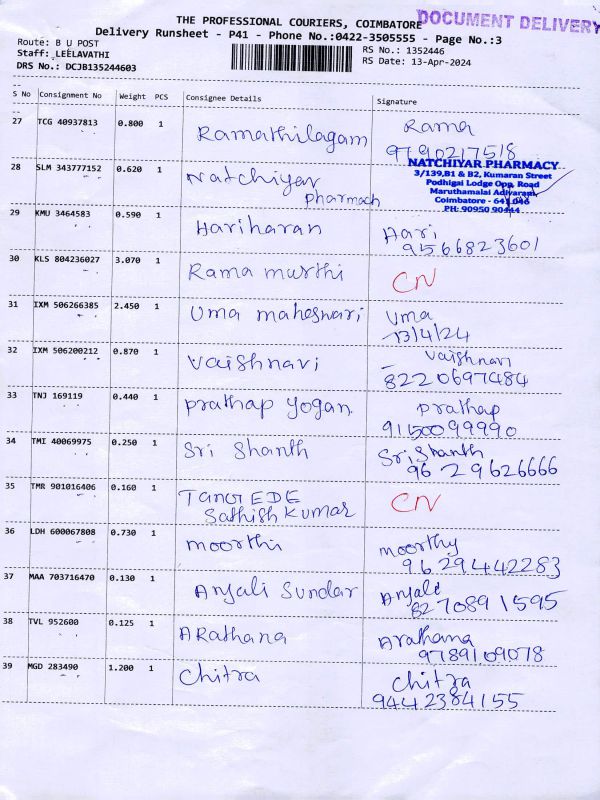 THE PROFESSIONAL COURIERS, COIMBATORE
DOCUMENT DELIVERY
Delivery Runsheet - P41 - Phone No.:0422-3505555 - Page No.:3
Route: B U POST
RS No.: 1352446
Staff: LEELAVATHI
RS Date: 13-Apr-2024
DRS No.: DCJB135244603
S No Consignment No Weight PCS Consignee Details Signature
27 TCG 40937813 0.800 1 Ramathilagam Rama
9790217518
28 SLM 343777152 0.620 1 Natchiyar
Pharmach
NATCHIYAR PHARMACY
3/139,B1 & B2, Kumaran Street
Podhigai Lodge Opp, Road
Maruthamalai Adivaram,
Coimbatore - 641 046
PH: 90950 90444
29 KMU 3464583 0.590 1 Hariharan Hari
9566823601
30 KLS 804236027 3.070 1 Rama murthi CN
31 IXM 506266385 2.450 1 Uma maheswari Uma
13/4/24
32 IXM 506200212 0.870 1 Vaishnavi Vaishnavi
8220697484
33 TNJ 169119 0.440 1 Prathap yogan Prathap
9150099990
34 TMI 40069975 0.250 1 Sri Shanth Sri Shanth
9629626666
35 TMR 901016406 0.160 1 TANGEDE
Sathish Kumar CN
36 LDH 600067808 0.730 1 moorthi moorthy
9629442283
37 MAA 703716470 0.130 1 Anjali Sundar Anjali
8270891595
38 TVL 952600 0.125 1 ARathana Arathana
9789109078
39 MGD 283490 1.200 1 Chitra Chitra
9442384155